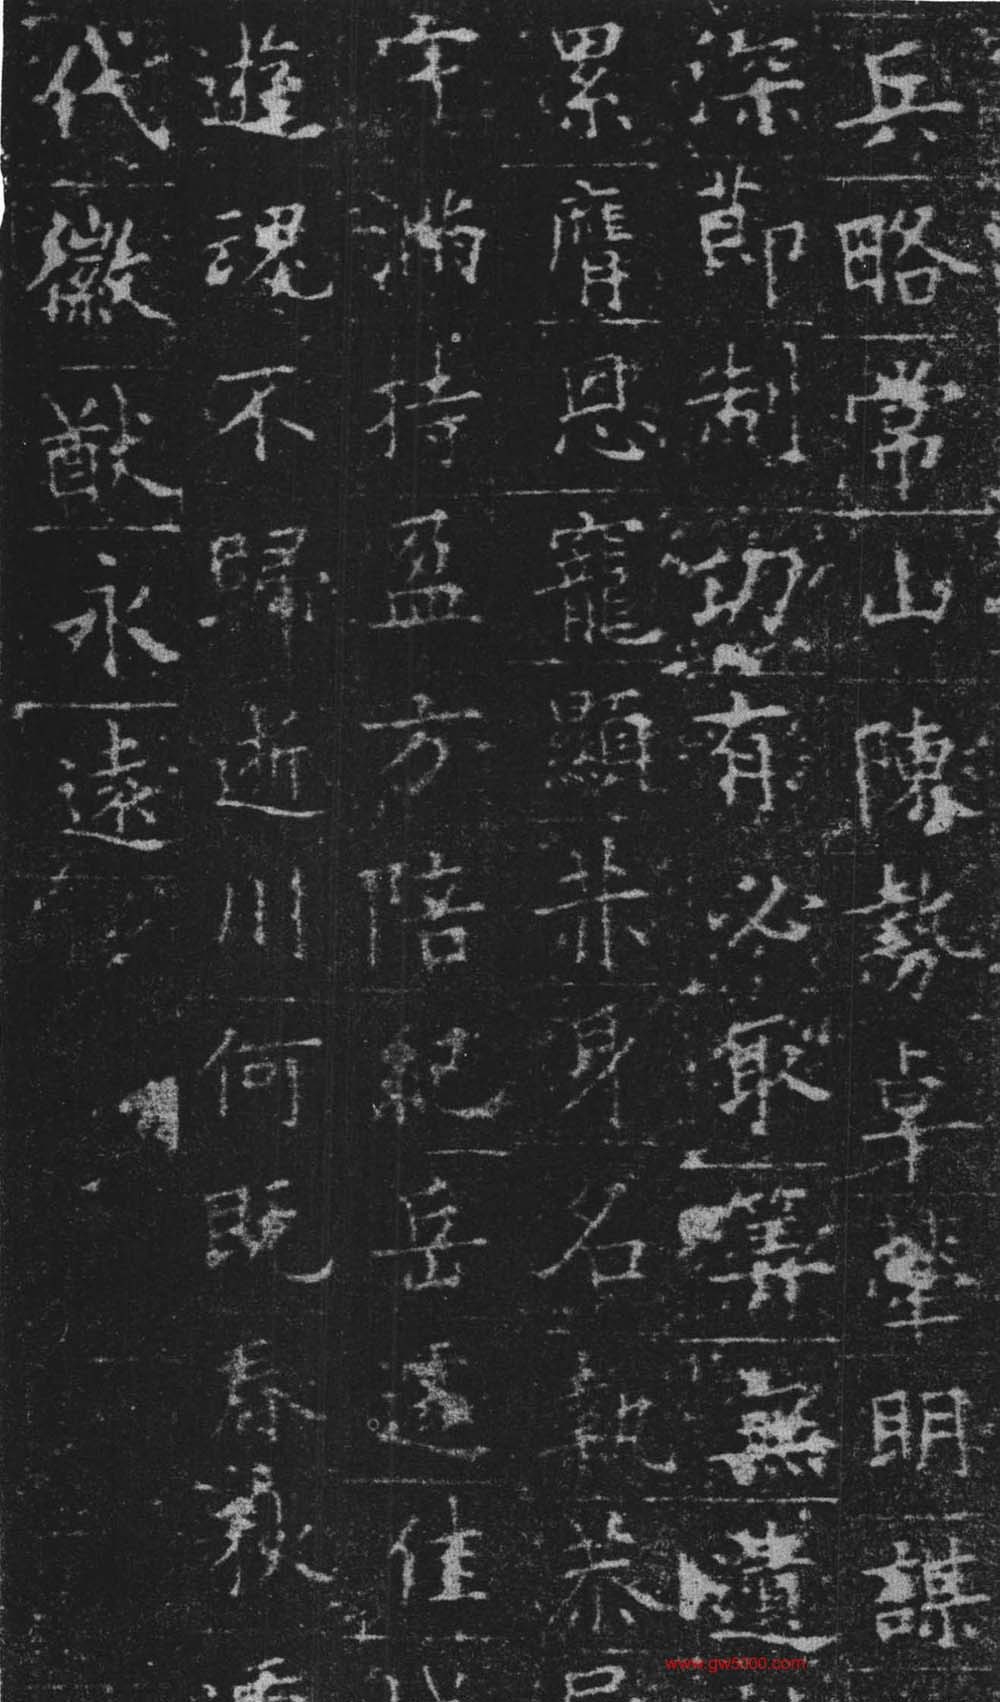 兵略常山陳勢卓犖明謀
深節制功有必取筭無遺
累膺恩寵顯光身名執恭
守滿持盈方陪紀岳遽佳
遊魂不歸逝川何既春秋
代徽猷永遠
www.gw5000.com